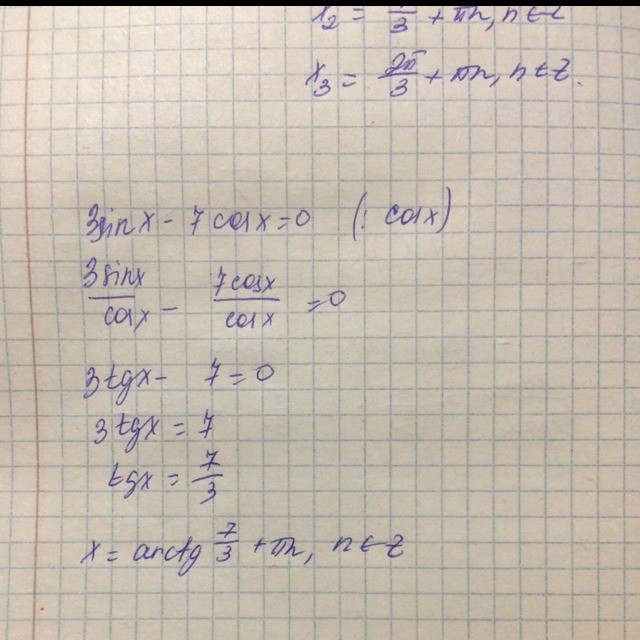 x₂ = π/3 + πn, n∈Z
x₃ = 2π/3 + πn, n∈Z.
3sinx - 7cosx = 0 (: cosx)
3sinx/cosx - 7cosx/cosx = 0
3tgx - 7 = 0
3tgx = 7
tgx = 7/3
x = arctg 7/3 + πn, n∈Z